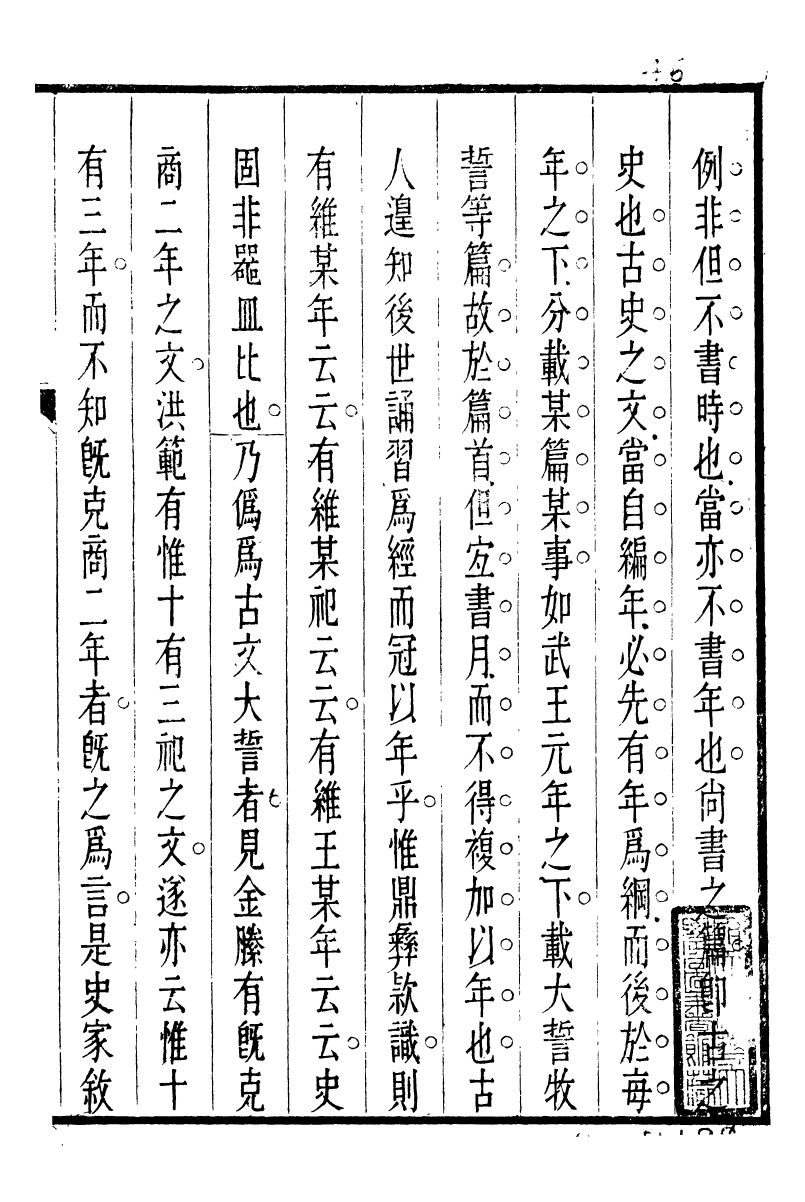 例非但不書時也當亦不書年也尙書之篇卽古之
史也古史之文當自編年必先有年爲綱而後於每
年之下分載某篇某事如武王元年之下載大誓牧
誓等篇故於篇首但宐書月而不得複加以年也古
人遑知後世誦習爲經而冠以年乎惟鼎彝款識則
有維某年云云有維某祀云云有維王某年云云史
固非器皿比也乃僞爲古文大誓者見金縢有旣克
商二年之文洪範有惟十有三祀之文遂亦云惟十
有三年而不知旣克商二年者旣之爲言是史家敘